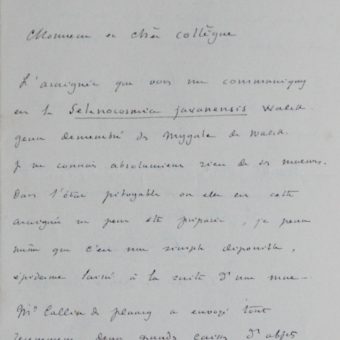 Monsieur et cher collègue
L'araignée que vous me communiquez
est la Selenocosmia javanensis Walck.
genre démembré des Mygale de Walck.
Je ne connais absolument rien de ses mœurs.
Dans l'état pitoyable où elle est cette
araignée ne peut être préparée, je pense
même que c'est une simple dépouille,
épiderme laissé à la suite d'une mue —
Mr Collin de Plancy a envoyé tout
récemment deux grandes caisses d'objets